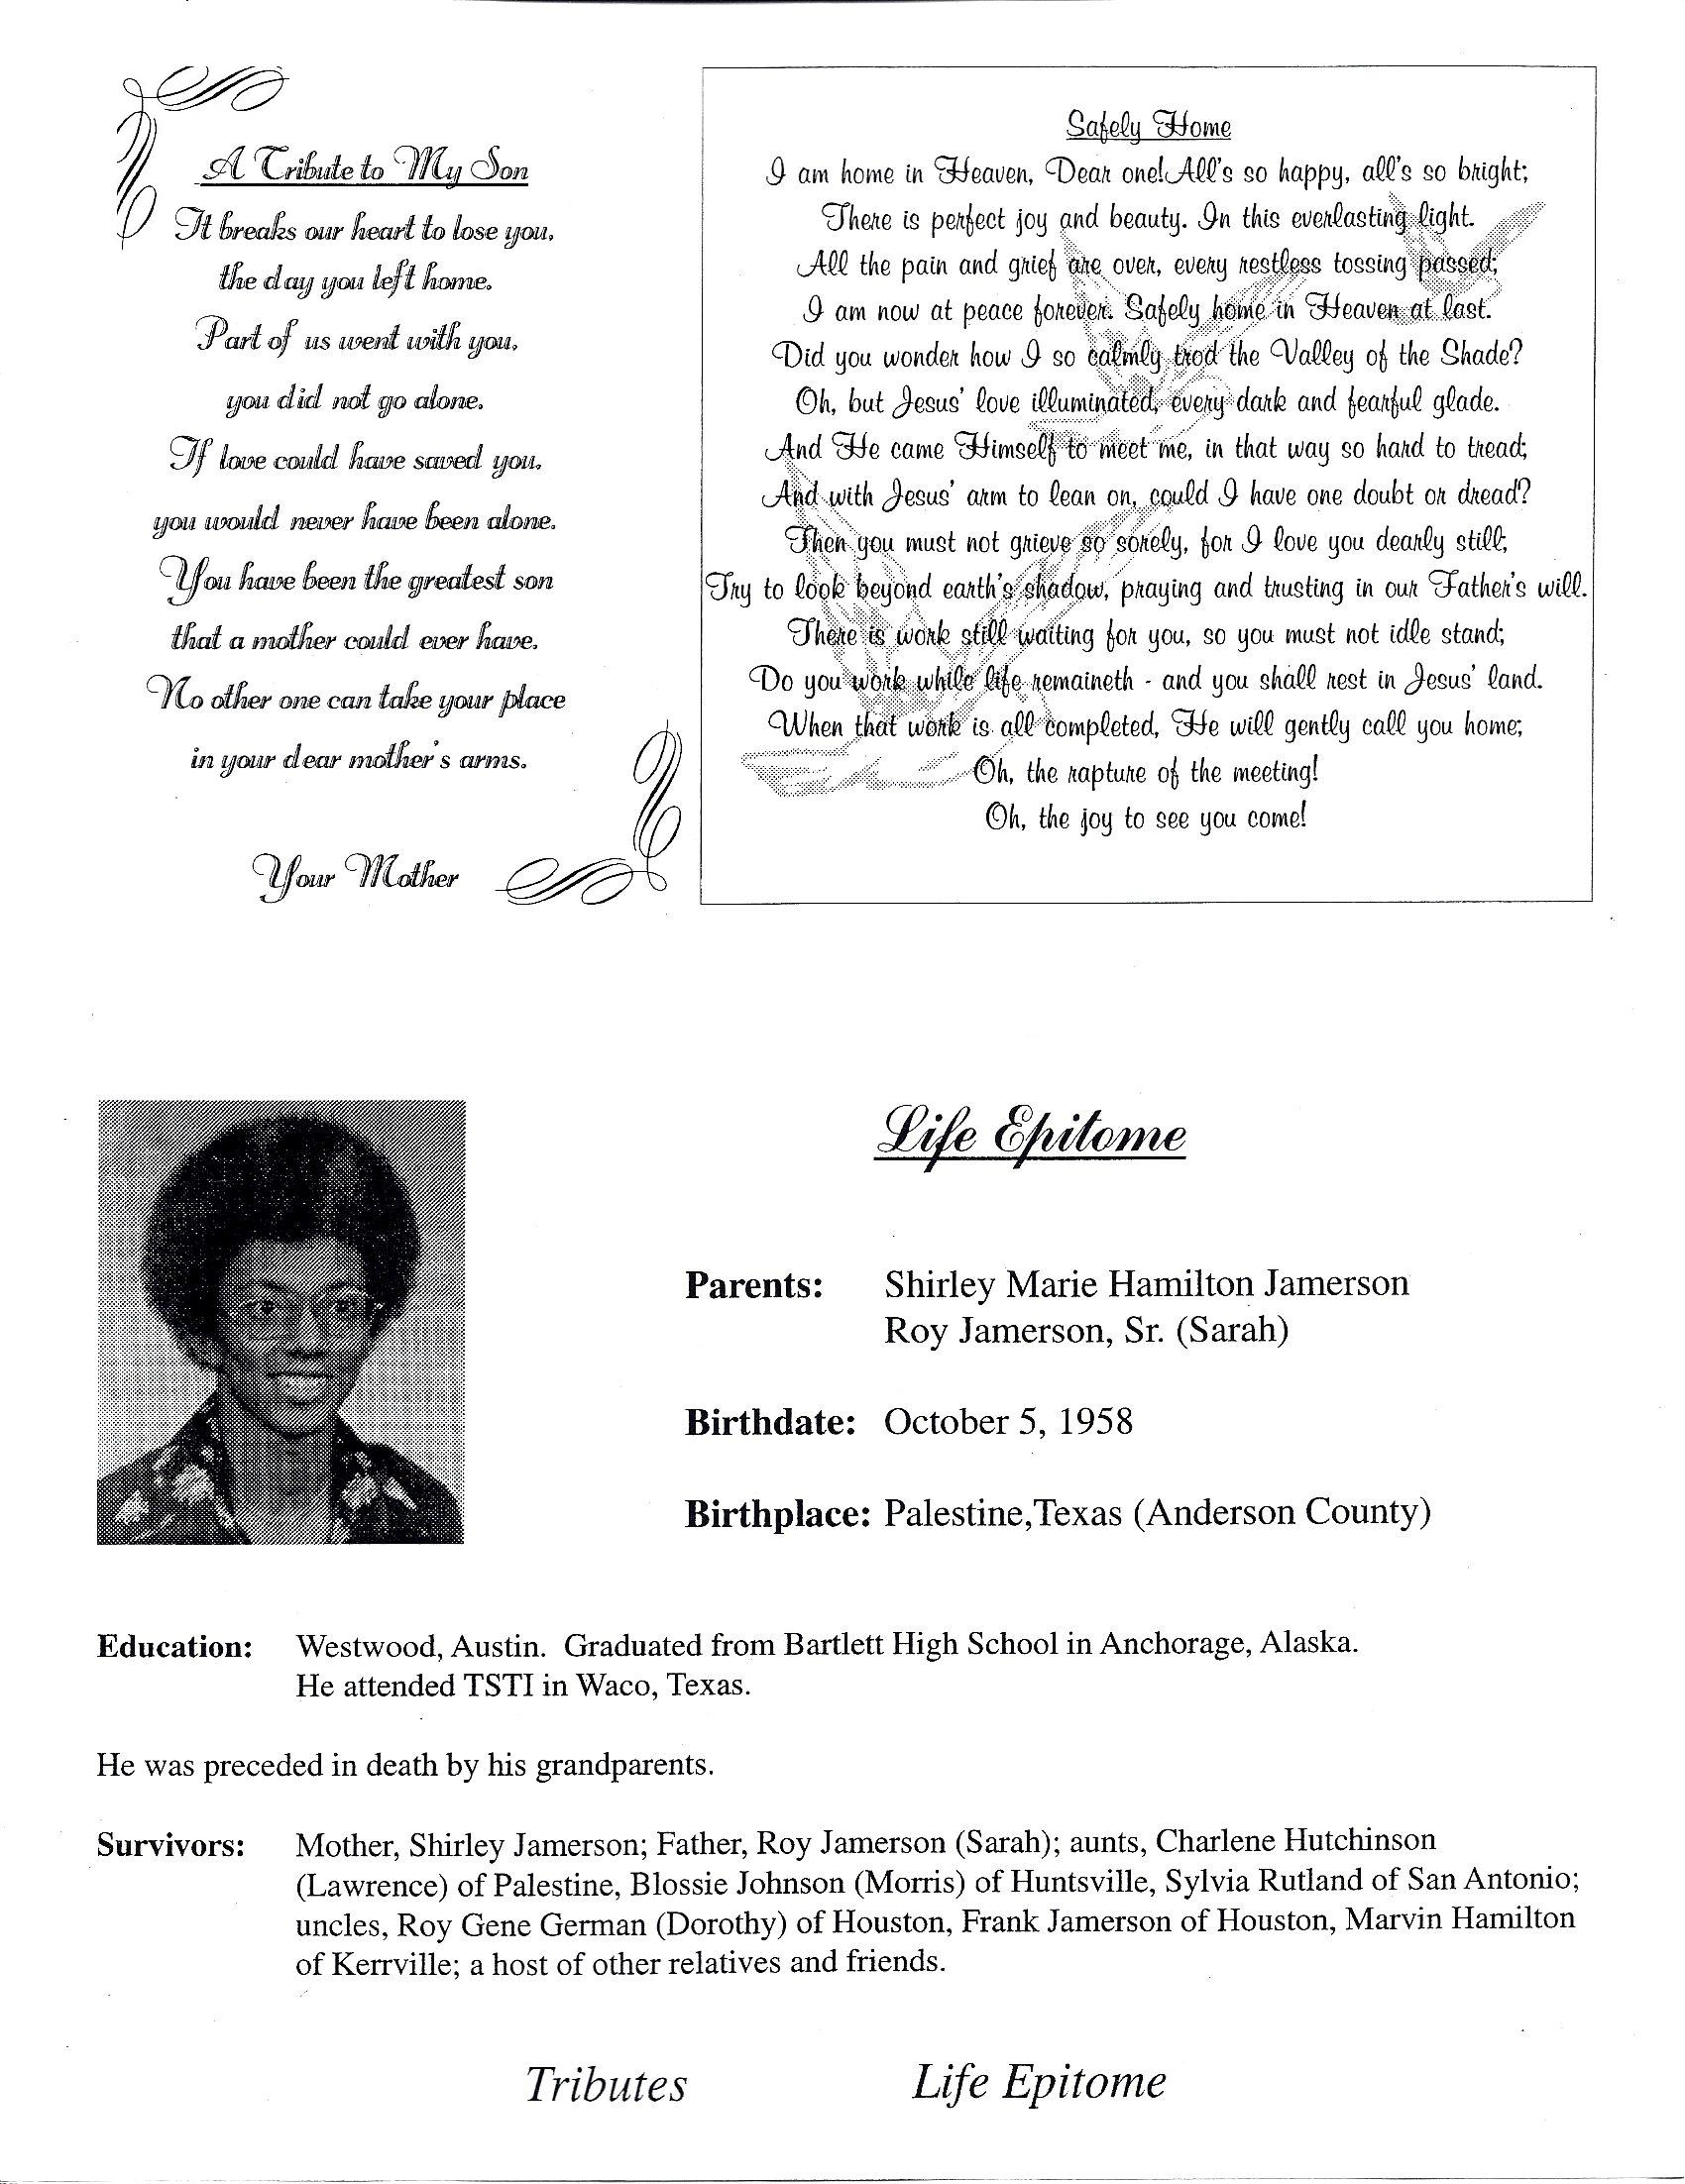 A Tribute to My Son
It breaks our heart to lose you,
the day you left home.
Part of us went with you,
you did not go alone.
If love could have saved you,
you would never have been alone.
You have been the greatest son
that a mother could ever have.
No other one can take your place
in your dear mother's arms.
Your Mother
Safely Home
I am home in Heaven, Dear one! All's so happy, all's so bright;
There is perfect joy and beauty. In this everlasting light.
All the pain and grief are over, every restless tossing passed;
I am now at peace forever. Safely home in Heaven at last.
Did you wonder how I so calmly trod the Valley of the Shade?
Oh, but Jesus' love illuminated, every dark and fearful glade.
And He came Himself to meet me, in that way so hard to tread;
And with Jesus' arm to lean on, could I have one doubt or dread?
Then you must not grieve so sorely, for I love you dearly still;
Try to look beyond earth's shadow, praying and trusting in our Father's will.
There is work still waiting for you, so you must not idle stand;
Do you work while life remaineth - and you shall rest in Jesus' land.
When that work is all completed, He will gently call you home;
Oh, the rapture of the meeting!
Oh, the joy to see you come!
Life Epitome
Parents: Shirley Marie Hamilton Jamerson
Roy Jamerson, Sr. (Sarah)
Birthdate: October 5, 1958
Birthplace: Palestine, Texas (Anderson County)
Education: Westwood, Austin. Graduated from Bartlett High School in Anchorage, Alaska.
He attended TSTI in Waco, Texas.
He was preceded in death by his grandparents.
Survivors: Mother, Shirley Jamerson; Father, Roy Jamerson (Sarah); aunts, Charlene Hutchinson
(Lawrence) of Palestine, Blossie Johnson (Morris) of Huntsville, Sylvia Rutland of San Antonio;
uncles, Roy Gene German (Dorothy) of Houston, Frank Jamerson of Houston, Marvin Hamilton
of Kerrville; a host of other relatives and friends.
Tributes Life Epitome